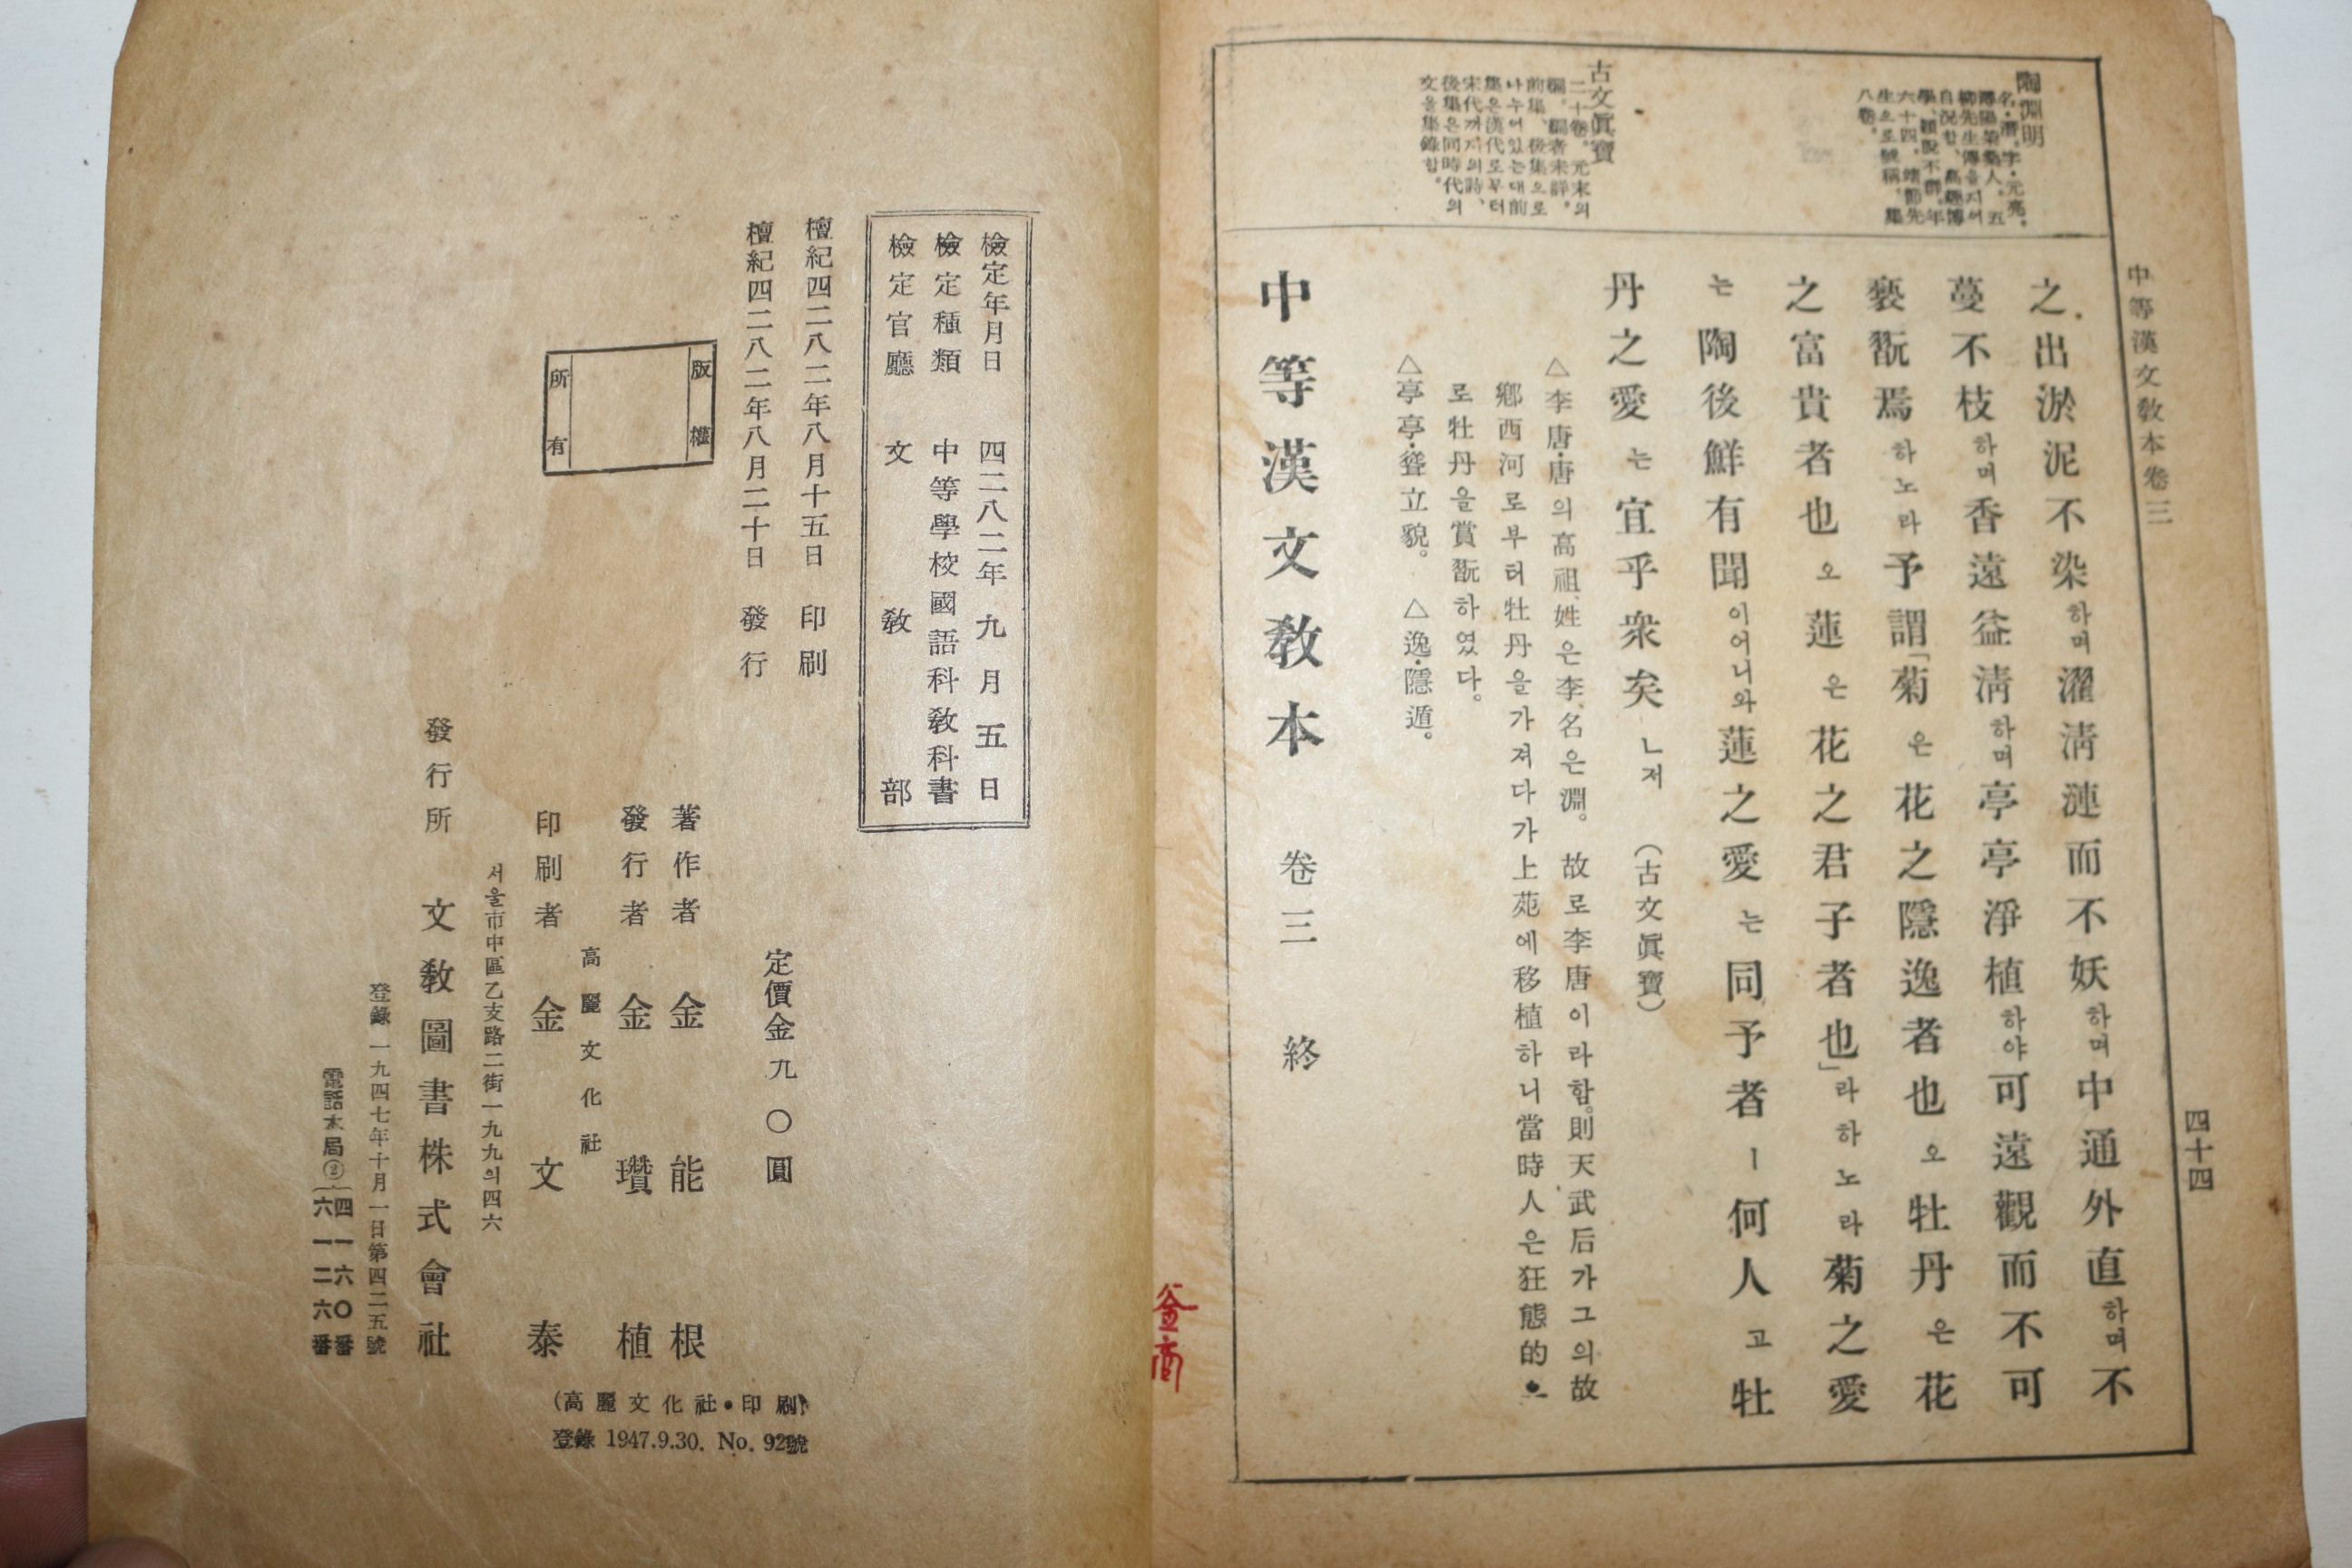 中等漢文敎本卷三
四十四
陶淵明
名·潛。字·元亮。
潯陽柴桑人。五
柳先生傳을지어
自況함、高趣博
學、穎脫不群。年
六十四。靖節先
生으로號稱。集
八卷。
古文眞寶
二十卷。元末의
編。編者未詳。
前集、後集으로
나누어있는대前
集은漢代로부터
宋代까지의詩、
後集은同時代의
文을集錄함。
之出淤泥不染하며濯淸漣而不妖하며中通外直하며不
蔓不枝하며香遠益淸하며亭亭淨植하야可遠觀而不可
褻翫焉하노라予謂「菊은花之隱逸者也오牡丹은花
之富貴者也오蓮은花之君子者也」라하노라菊之愛
는陶後鮮有聞이어니와蓮之愛는同予者ㅣ何人고牡
丹之愛는宜乎衆矣ㄴ저 (古文眞寶)
△李唐·唐의高祖、姓은李、名은淵。故로李唐이라함。則天武后가그의故
鄕西河로부터牡丹을가져다가上苑에移植하니當時人은狂態的으
로牡丹을賞翫하였다。
△亭亭·聳立貌。 △逸·隱遁。
中等漢文敎本 卷三 終
釜商
檢定年月日 四二八二年九月五日
檢定種類 中等學校國語科敎科書
檢定官廳 文敎部
檀紀四二八二年八月十五日 印刷
檀紀四二八二年八月二十日 發行
版權
所有
定價金九〇圓
著作者 金能根
發行者 金瓚植
高麗文化社
印刷者 金文泰
서울市中區乙支路二街一九九의四六
發行所 文敎圖書株式會社
登錄一九四七年十月一日第四二五號
電話本局②{四一六〇番
六一二六番
(高麗文化社·印刷)
登錄 1947.9.30. No. 92號